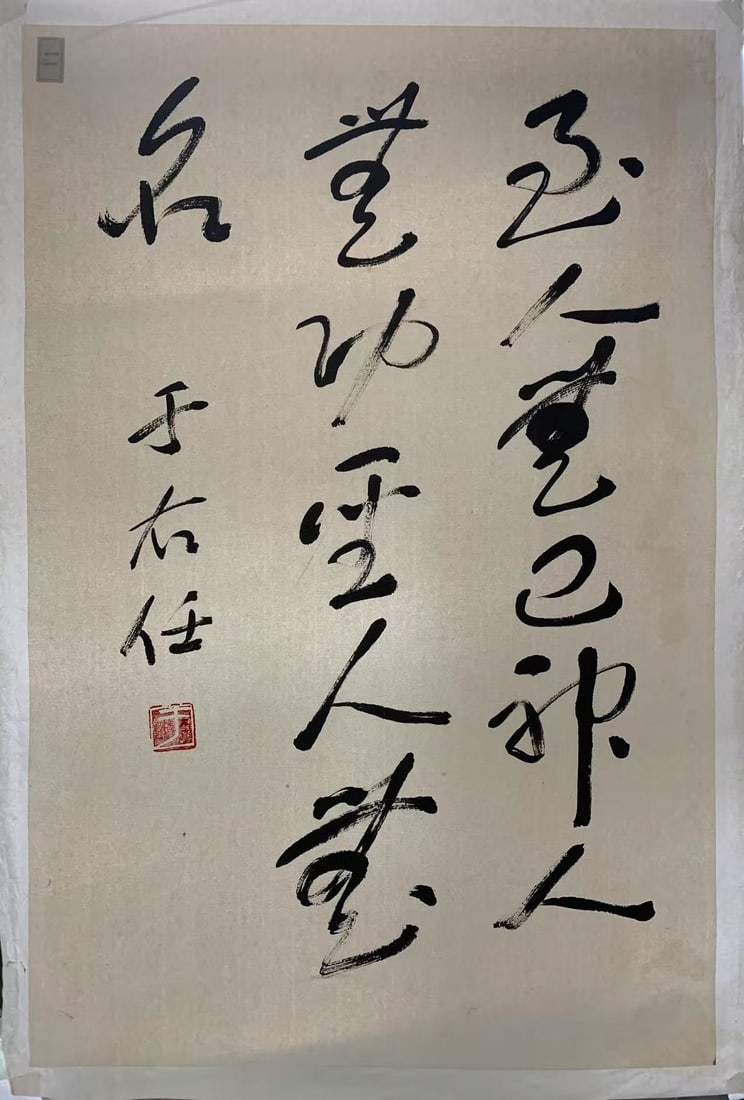 至人無己神人
無功聖人無
名
于右任